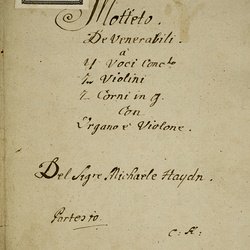 Motteto.
De Venerabili.
à
4 Voci Conc:to
2 Violini
2 Corni in g.
Con
Organo è Violone.
Del Sigre Michaele Haydn.
Partes 10.
C: K: